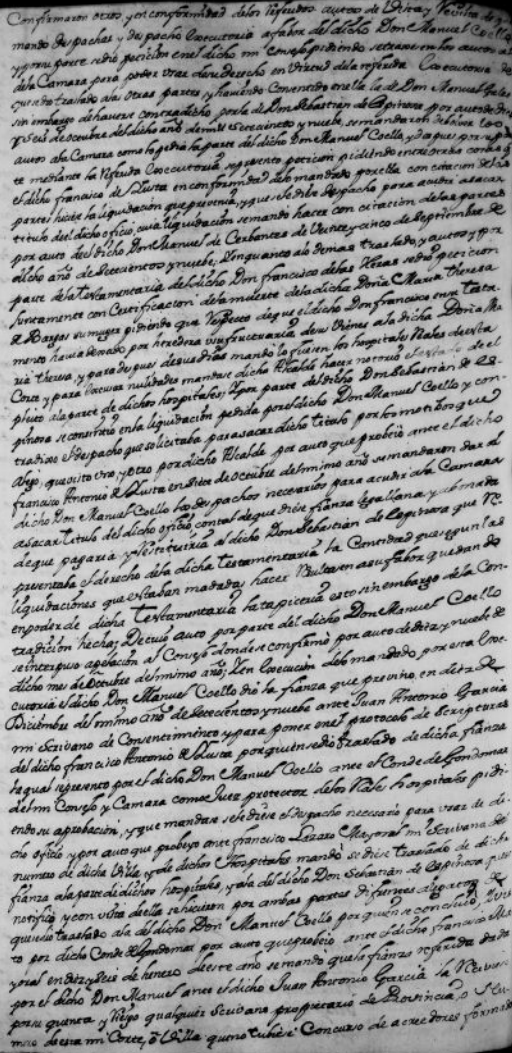 Confirmaron otros, y en conformidad de los referidos autos de Vista y Revista se
mando despachar y despacho executoria a fabor del dicho Don Manuel Coello
y por su parte se dio peticion en el dicho mi Consejo pidiendo se traxesen los autos
de la Camara para poder usar de su derecho en virtud de la referida Executoria de
que se dio traslado a las otras partes y haviendo consentido en ella la de Don Manuel
sin embargo de haverse contradicho por la de Don Sebastian de Espinosa por auto de diez
y seis de octubre del dicho año de mil setecientos y nueve, se mandaron debolver los
autos a la Camara como lo pedia la parte del dicho Don Manuel Coello, y despues por su par
te mediante la referida Executoria, se presento peticion pidiendo entre otras cosas q
el dicho francisco de en conformidad de lo mandado por ella con citacion de las
partes hiciese la liquidacion que prevenia, y que se le diese despacho para acudir a sacar
titulo del dicho oficio, cuia liquidacion se mando hacer con citacion de las partes
por auto del dicho Don Manuel de Cerbantes de Veinte y cinco de Septiembre de
dicho año de setecientos y nueve; y en quanto a lo demas traslado, y autos y por
parte de la testamentaria del dicho Don francisco de las Heras se dio peticion
juntamente con Certificacion de la muerte de la dicha Doña Maria Theresa
de Bargas su muger pidiendo que respecto de que el dicho Don francisco en su testa
mento havia dexado por heredera usufructuaria de sus vienes a la dicha Doña Ma
ria theresa, y para despues de sus dias mando lo fuesen los hospitales Reales de esta
Corte y para escusar nulidades mandase dicho Alcalde hacer notorio el estado de el
pleito a la parte de dichos hospitales; y por parte del dicho Don Sebastian de Es
pinosa se consintio en la liquidacion pedida por el dicho Don Manuel Coello y con
tradixo el despacho que solicitaba para sacar dicho titulo por los motibos que
alego, que visto uno, y otro por dicho Alcalde por auto que probeio ante el dicho
francisco Antonio de en siete de octubre del mismo año se mandaron dar al
dicho Don Manuel Coello los despachos necesarios para acudir a la Camara
a sacar titulo del dicho oficio con tal de que diese fianza legallana y abonada
de que pagaria y restituiria al dicho Don Sebastian de Espinosa que re
presentaba el derecho de la dicha testamentaria la Cantidad que segun las
liquidaciones que estaban mandadas hacer resultasen a su fabor quedando
en poder de dicha testamentaria la tapiceria esto sin embargo de la Con
tradicion hecha; De cuio auto por parte del dicho Don Manuel Coello
se interpuso apelacion al Consejo donde se confirmo por auto de diez y nueve de
dicho mes de octubre del mismo año; Y en execucion de lo mandado por esta Exe
cutoria el dicho Don Manuel Coello dio la fianza que previno, en diez de
Diciembre del mismo año de setecientos y nueve ante Juan Antonio Garcia
mi Scrivano de Consentimiento y para poner en el protocolo de Scripturas
del dicho francisco Antonio de por quien se dio traslado de dicha fianza
la qual se presento por el dicho Don Manuel Coello ante el Conde de Gondomar
del mi Consejo y Camara como Juez protector de los Reales hospitales pidi
endo su aprobacion, y que mandase se le diese el despacho necesario para usar de di
cho oficio y por auto que probeyo ante francisco Lazaro Mayoral mi Scrivano del
numero de dicha Villa, y de dichos Hospitales mando se diese traslado de dicha
fianza a la parte de dichos hospitales, y a la del dicho Don Sebastian de Espinosa, que se
notifico y con vista de ella se hicieron por ambas partes diferentes alegatos de
que se dio traslado a la del dicho Don Manuel Coello por quien se concluyo, y vis
to por dicho Conde de Gondomar por auto que probeio ante el dicho francisco Ma
yoral en diez y seis de henero de este año se mando que la fianza referida dada
por el dicho Don Manuel ante el dicho Juan Antonio Garcia la
por su quenta y riesgo qualquier Scrivano propietario de Provincia, o
mero de esta mi Corte, o Villa que no tubiere Concurso de acreedores formado